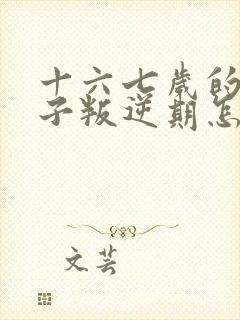 十六七岁的
子叛逆期怎
文芸